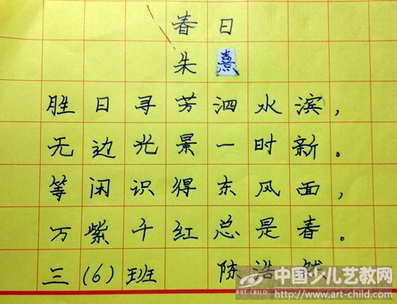 春日
朱熹
胜日寻芳泗水滨，
无边光景一时新。
等闲识得东风面，
万紫千红总是春。
三（6）班 陈浩然
中国少儿艺教网
www.art-child.com